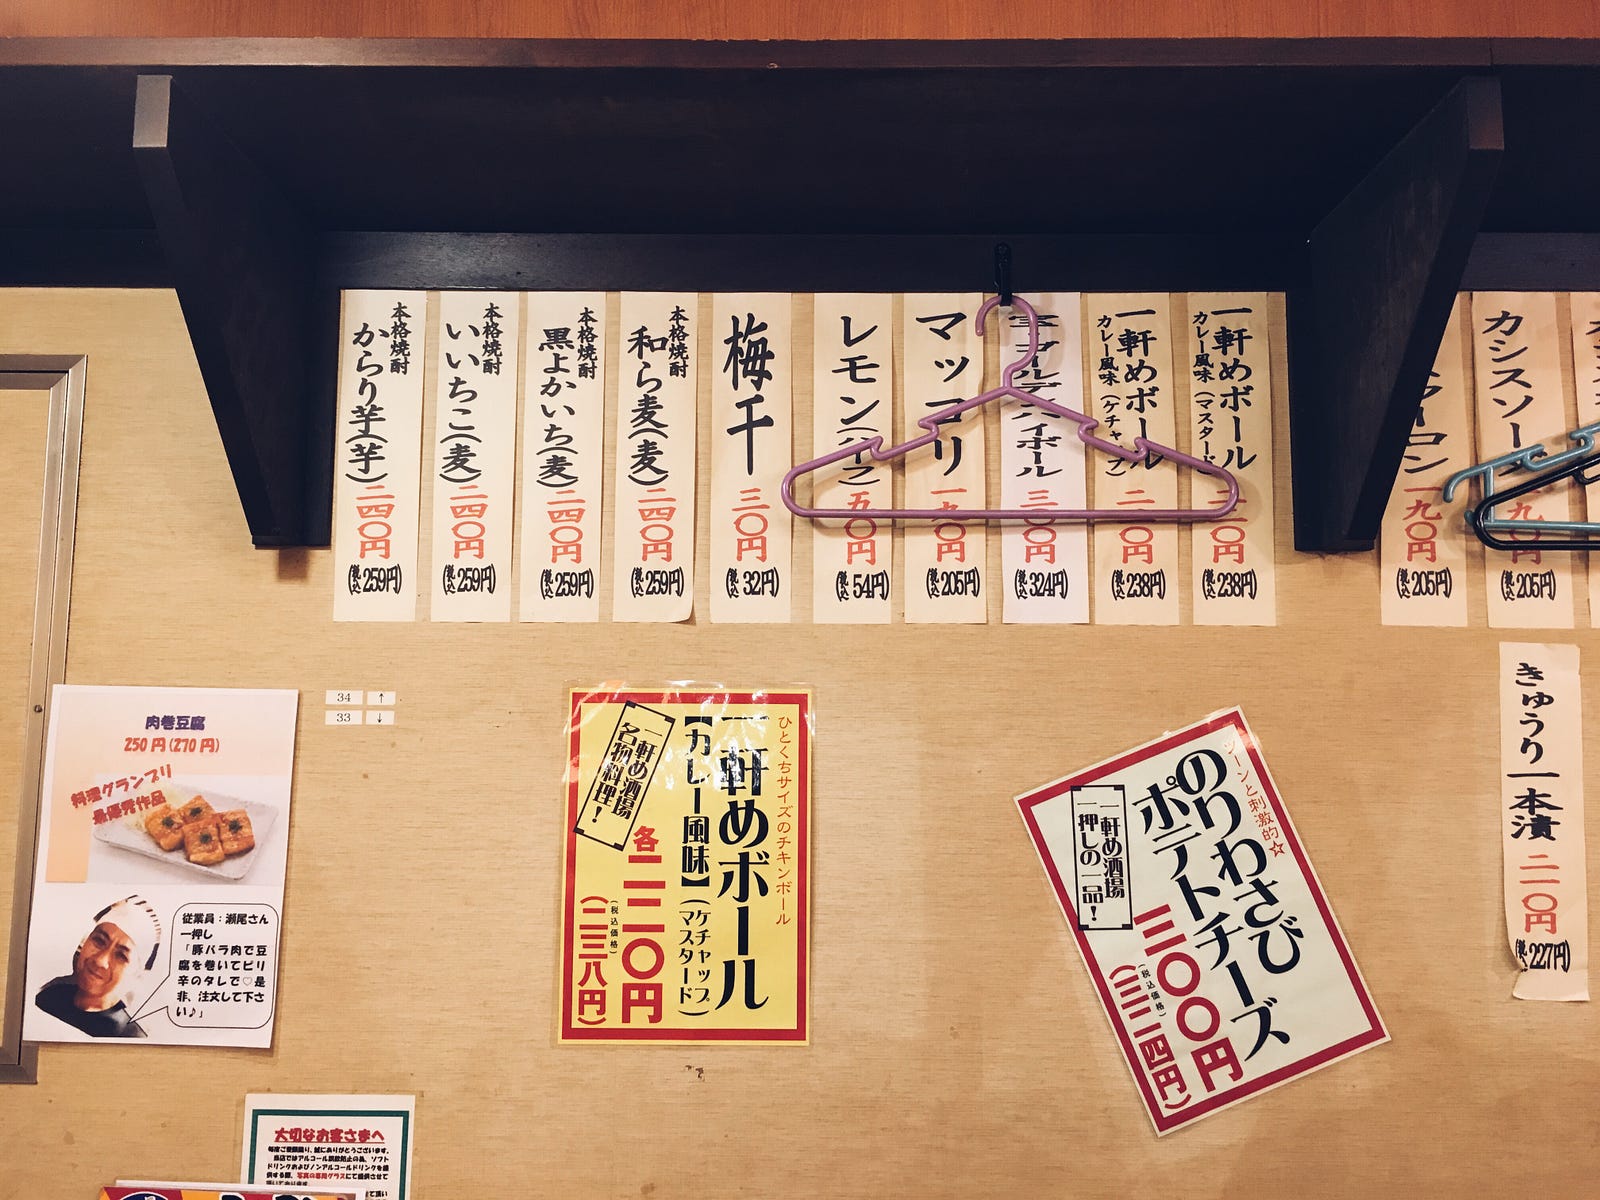 本格焼酎
からり芋(芋)
二四〇円
(税込259円)
本格焼酎
いいちこ(麦)
二四〇円
(税込259円)
本格焼酎
黒よかいち(麦)
二四〇円
(税込259円)
本格焼酎
和ら麦(麦)
二四〇円
(税込259円)
梅干
三〇円
(税込32円)
レモン(ハーフ)
五〇円
(税込54円)
マッコリ
一九〇円
(税込205円)
ハイボール
三〇〇円
(税込324円)
一軒めボール
カレー風味(ケチャップ)
二二〇円
(税込238円)
一軒めボール
カレー風味(マスタード)
二二〇円
(税込238円)
一九〇円
(税込205円)
カシスソーダ
一九〇円
(税込205円)
きゅうり一本漬
二一〇円
(税込227円)
肉巻豆腐
250円(270円)
料理グランプリ
最優秀作品
従業員：瀬尾さん
一押し
「豚バラ肉で豆
腐を巻いてピリ
辛のタレで♡是
非、注文して下さ
い♪」
34 ↑
33 ↓
ひとくちサイズのチキンボール
一軒めボール
【カレー風味】(ケチャップ マスタード)
各二二〇円
(税込価格)
(二三八円)
一軒め酒場
名物料理！
ツーンと刺激的☆
のりわさび
ポテトチーズ
三〇〇円
(税込価格)
(三二四円)
一軒め酒場
一押しの一品！
大切なお客さまへ
毎度ご愛顧賜り、誠にありがとうございます。
当店ではアルコール誤飲防止の為、ソフト
ドリンクおよびノンアルコールドリンクを提
供する際、写真の専用グラスにて提供させて
頂いております。